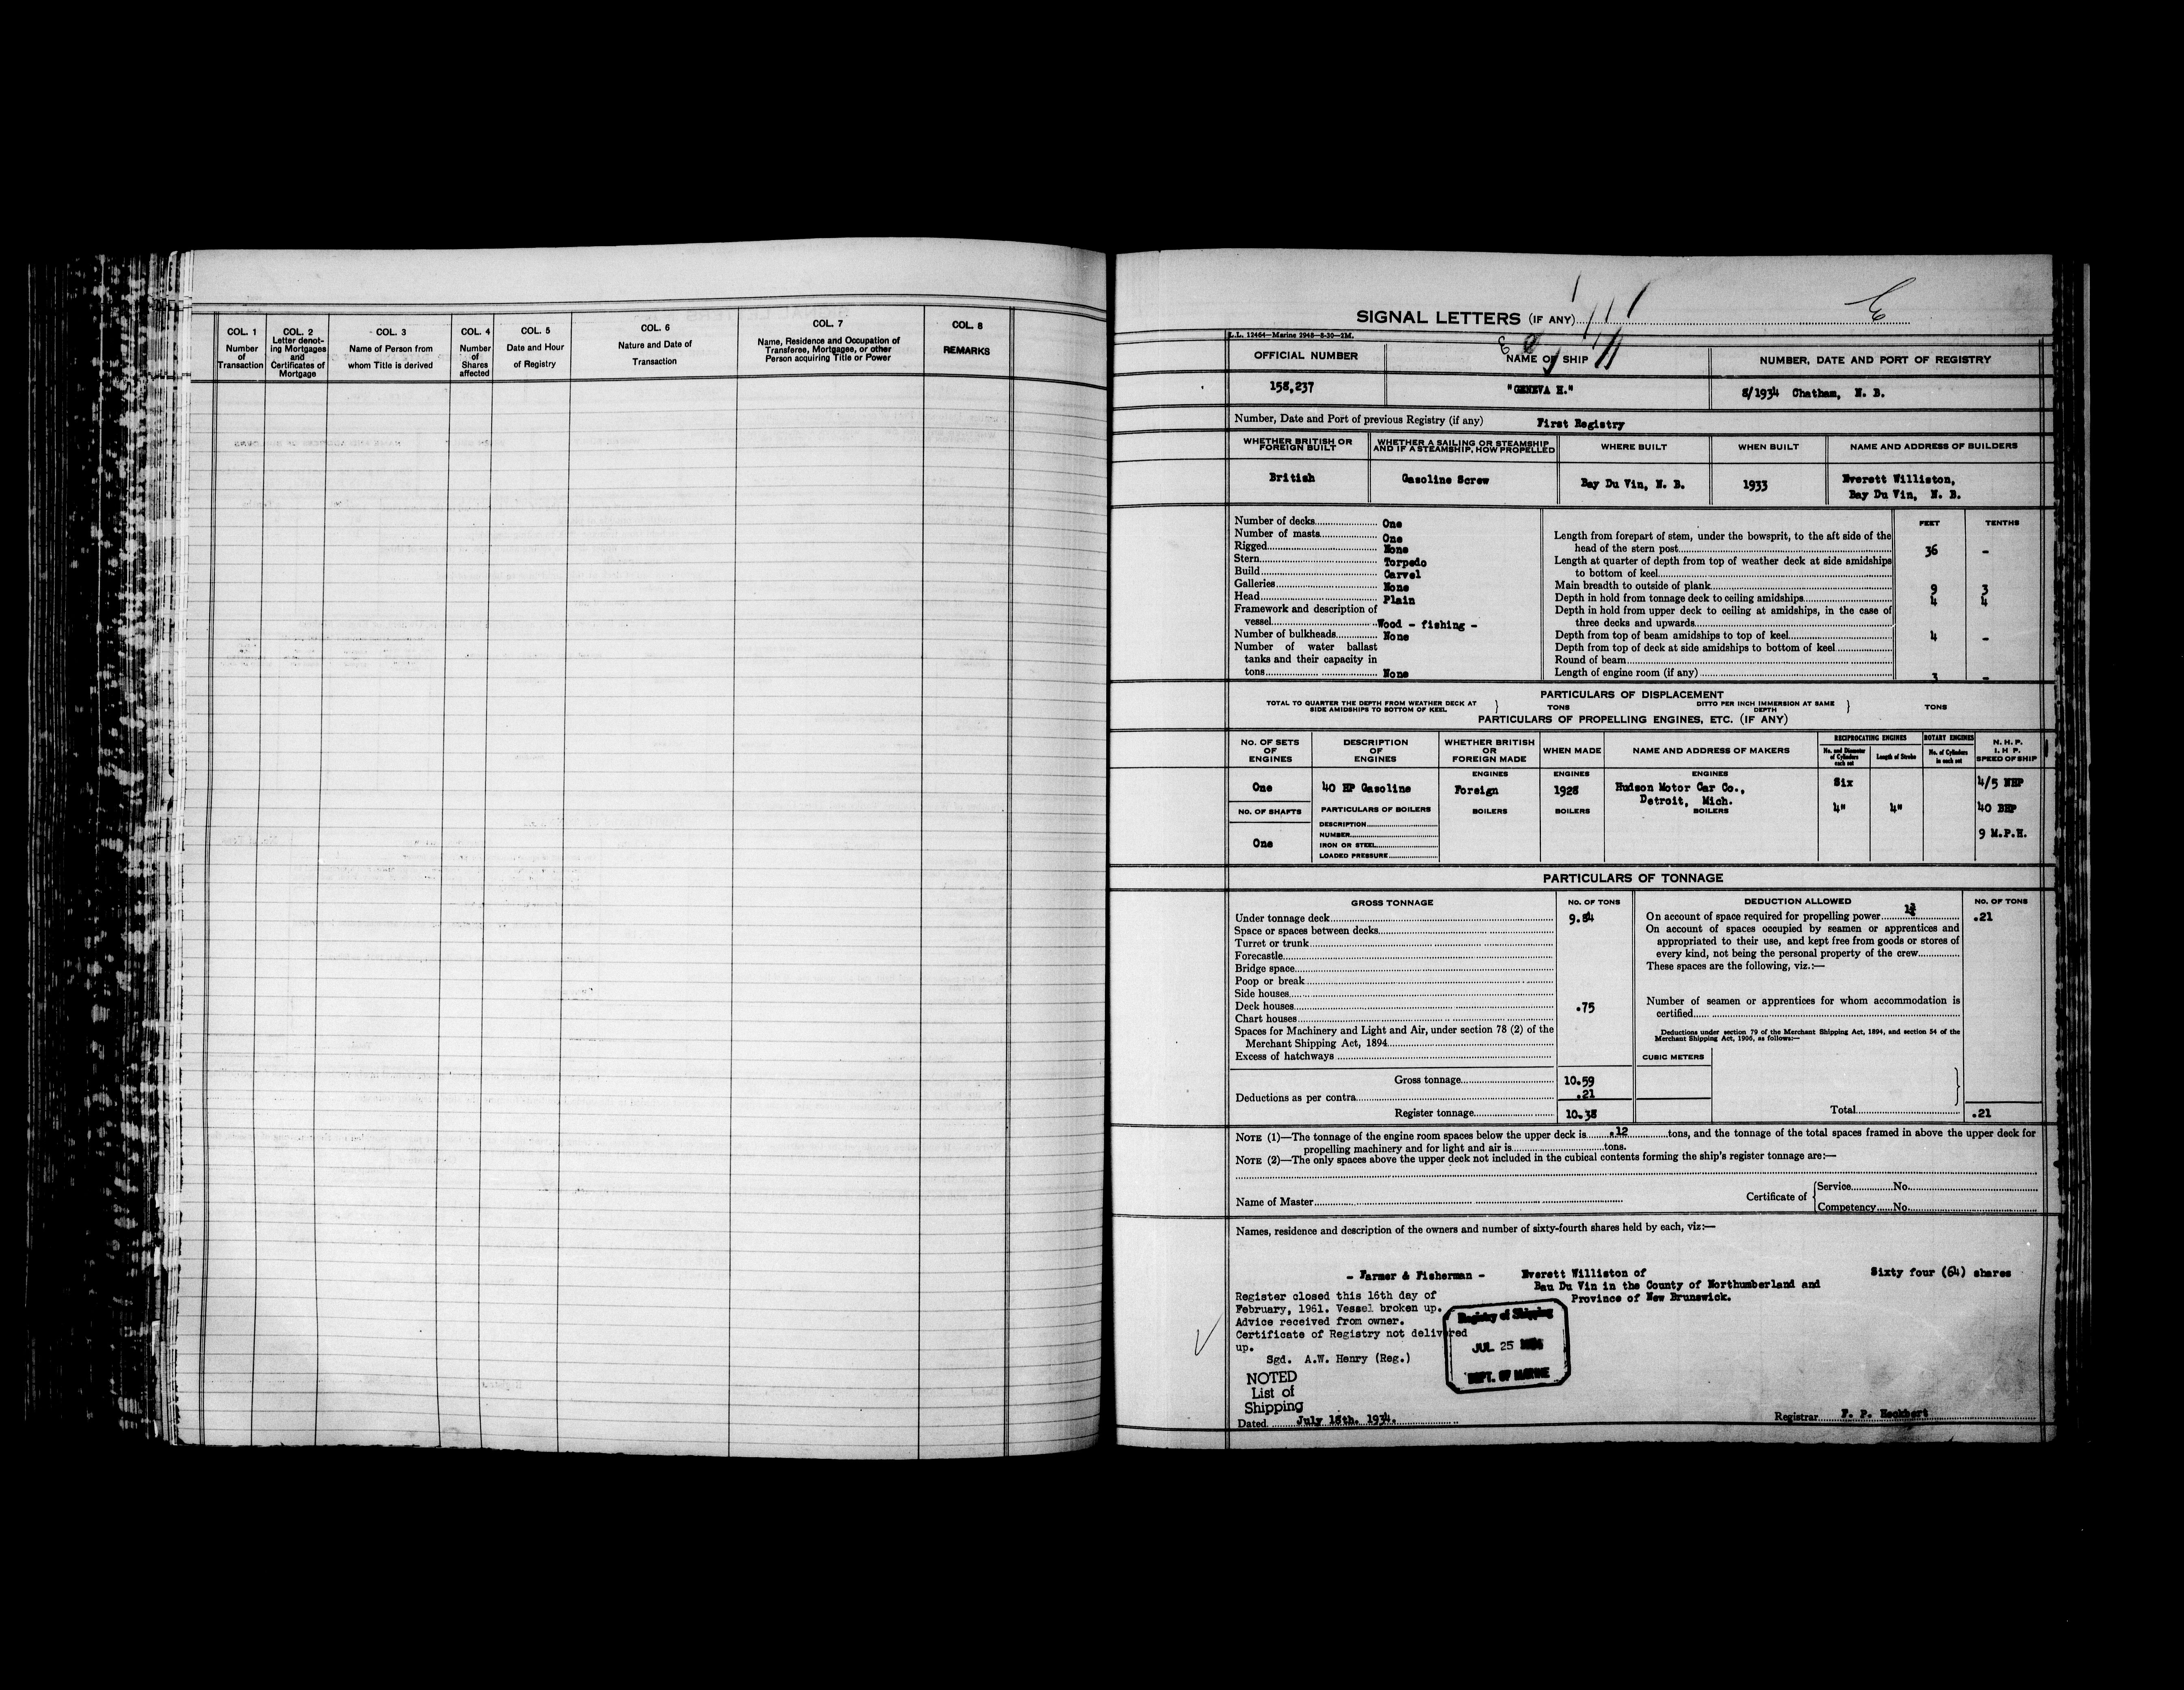 COL. 1
Number
of
Transaction
COL. 2
Letter denot-
ing Mortgages
and
Certificates of
Mortgage
COL. 3
Name of Person from
whom Title is derived
COL. 4
Number
of
Shares
affected
COL. 5
Date and Hour
of Registry
COL. 6
Nature and Date of
Transaction
COL. 7
Name, Residence and Occupation of
Transferee, Mortgagee, or other
Person acquiring Title or Power
COL. 8
REMARKS
SIGNAL LETTERS (IF ANY)
L.L. 12464—Marine 2948—8-30—2M.
OFFICIAL NUMBER NAME OF SHIP NUMBER, DATE AND PORT OF REGISTRY
158,237 "GENEVA H." 8/1934 Chatham, N. B.
Number, Date and Port of previous Registry (if any) First Registry
WHETHER BRITISH OR
FOREIGN BUILT
WHETHER A SAILING OR STEAMSHIP
AND IF A STEAMSHIP, HOW PROPELLED
WHERE BUILT WHEN BUILT NAME AND ADDRESS OF BUILDERS
British Gasoline Screw Bay Du Vin, N. B. 1933 Everett Williston,
Bay Du Vin, N. B.
Number of decks One
Number of masts One
Rigged None
Stern Torpedo
Build Carvel
Galleries None
Head Plain
Framework and description of
vessel Wood - fishing -
Number of bulkheads None
Number of water ballast
tanks and their capacity in
tons None
FEET TENTHS
Length from forepart of stem, under the bowsprit, to the aft side of the
head of the stern post 36 -
Length at quarter of depth from top of weather deck at side amidships
to bottom of keel
Main breadth to outside of plank 9 3
Depth in hold from tonnage deck to ceiling amidships 4 4
Depth in hold from upper deck to ceiling at amidships, in the case of
three decks and upwards
Depth from top of beam amidships to top of keel 4 -
Depth from top of deck at side amidships to bottom of keel
Round of beam
Length of engine room (if any) 3 -
PARTICULARS OF DISPLACEMENT
TOTAL TO QUARTER THE DEPTH FROM WEATHER DECK AT
SIDE AMIDSHIPS TO BOTTOM OF KEEL
TONS
DITTO PER INCH IMMERSION AT SAME
DEPTH
TONS
PARTICULARS OF PROPELLING ENGINES, ETC. (IF ANY)
No. OF SETS
OF
ENGINES
DESCRIPTION
OF
ENGINES
WHETHER BRITISH
OR
FOREIGN MADE
WHEN MADE
NAME AND ADDRESS OF MAKERS
RECIPROCATING ENGINES
No. and Diameter
of Cylinders
each set
Length of Stroke
ROTARY ENGINES
No. of Cylinders
in each set
N. H. P.
I. H P.
SPEED OF SHIP
ENGINES ENGINES ENGINES
One 40 HP Gasoline Foreign 1928 Hudson Motor Car Co.,
Detroit, Mich.
Six 4/5 NHP
4" 4" 40 BHP
9 M.P.H.
NO. OF SHAFTS PARTICULARS OF BOILERS BOILERS BOILERS BOILERS
One
DESCRIPTION
NUMBER
IRON OR STEEL
LOADED PRESSURE
PARTICULARS OF TONNAGE
GROSS TONNAGE NO. OF TONS
Under tonnage deck 9.84
Space or spaces between decks
Turret or trunk
Forecastle
Bridge space
Poop or break
Side houses
Deck houses .75
Chart houses
Spaces for Machinery and Light and Air, under section 78 (2) of the
Merchant Shipping Act, 1894
Excess of hatchways
Gross tonnage 10.59
Deductions as per contra .21
Register tonnage 10.38
DEDUCTION ALLOWED NO. OF TONS
On account of space required for propelling power .21
On account of spaces occupied by seamen or apprentices and
appropriated to their use, and kept free from goods or stores of
every kind, not being the personal property of the crew
These spaces are the following, viz.:—
Number of seamen or apprentices for whom accommodation is
certified
Deductions under section 79 of the Merchant Shipping Act, 1894, and section 54 of the
Merchant Shipping Act, 1906, as follows:—
CUBIC METERS
Total .21
NOTE (1)—The tonnage of the engine room spaces below the upper deck is .12 tons, and the tonnage of the total spaces framed in above the upper deck for
propelling machinery and for light and air is tons.
NOTE (2)—The only spaces above the upper deck not included in the cubical contents forming the ship's register tonnage are:—
Name of Master
Certificate of
Service No.
Competency No.
Names, residence and description of the owners and number of sixty-fourth shares held by each, viz:—
- Farmer & Fisherman - Everett Williston of Sixty four (64) shares
Bau Du Vin in the County of Northumberland and
Province of New Brunswick.
Register closed this 16th day of
February, 1961. Vessel broken up.
Advice received from owner.
Certificate of Registry not delivered
up.
Sgd. A.W. Henry (Reg.)
Registry of Shipping
JUL 25 1934
DEPT. OF MARINE
NOTED
List of
Shipping
Dated July 18th. 1934.
Registrar F. P. Heckbert